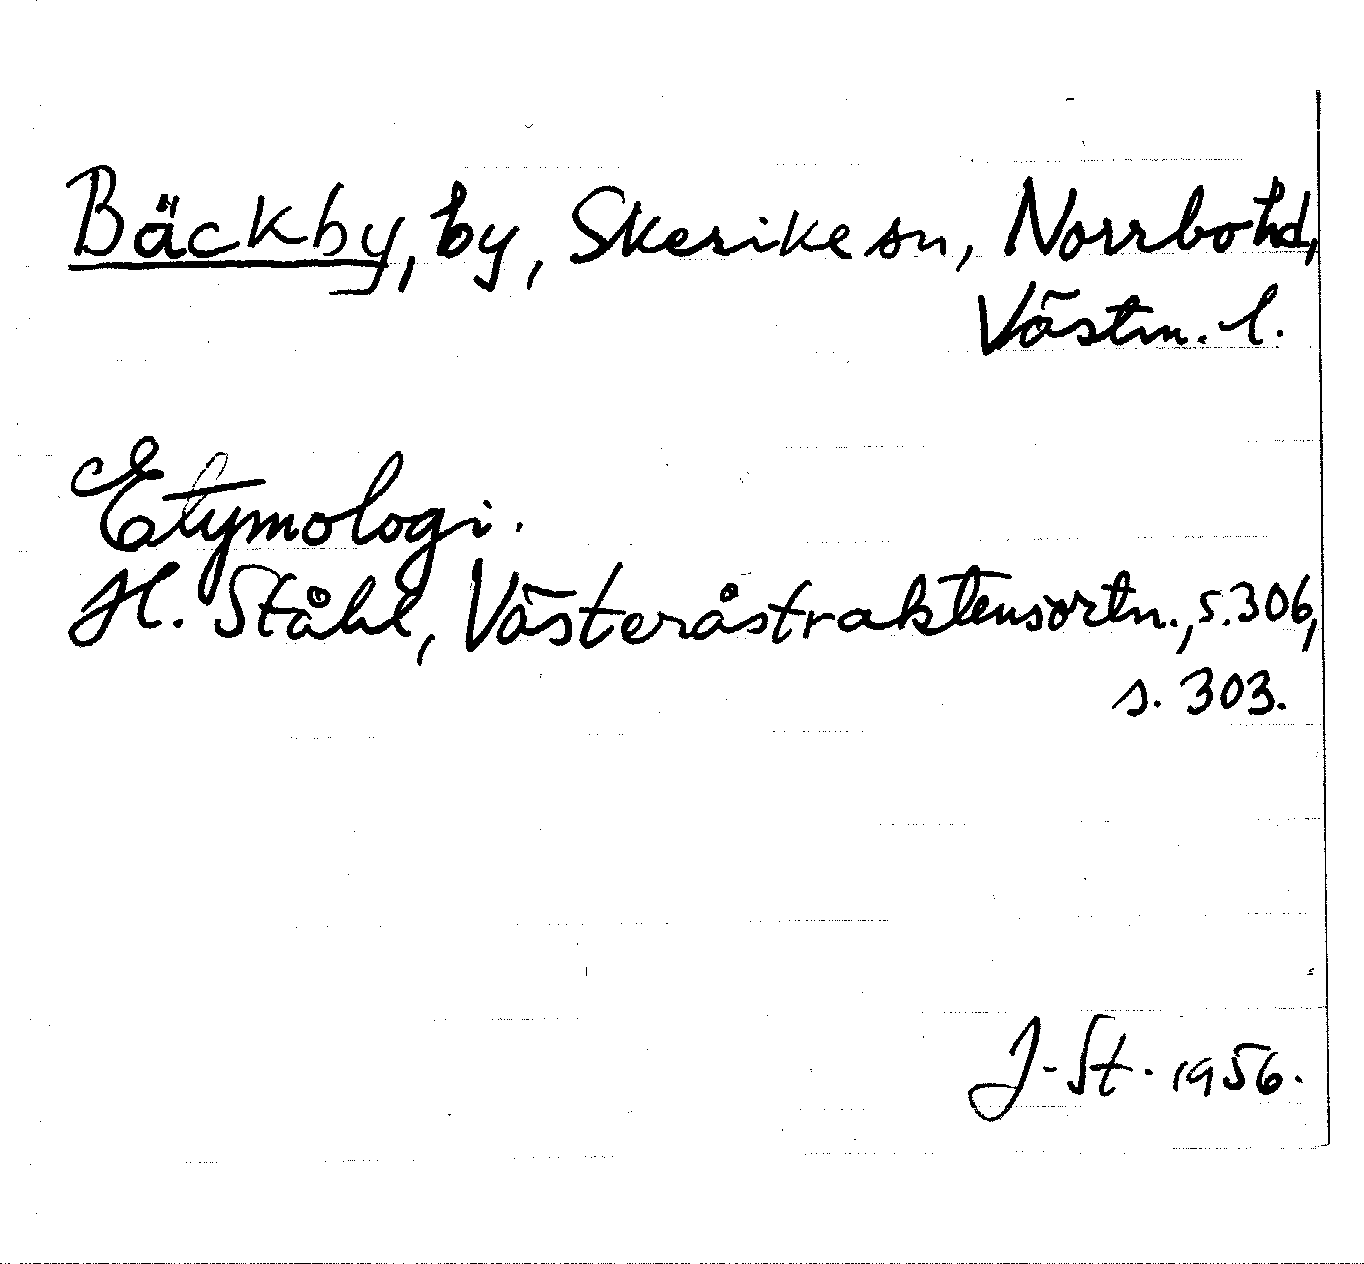 Bäckby, by, Skerike sn, Norrbo hd,
Västm. l.
Etymologi.
H. Ståhl, Västeråstraktens ortn., s. 306,
s. 303.
J-St. 1956.